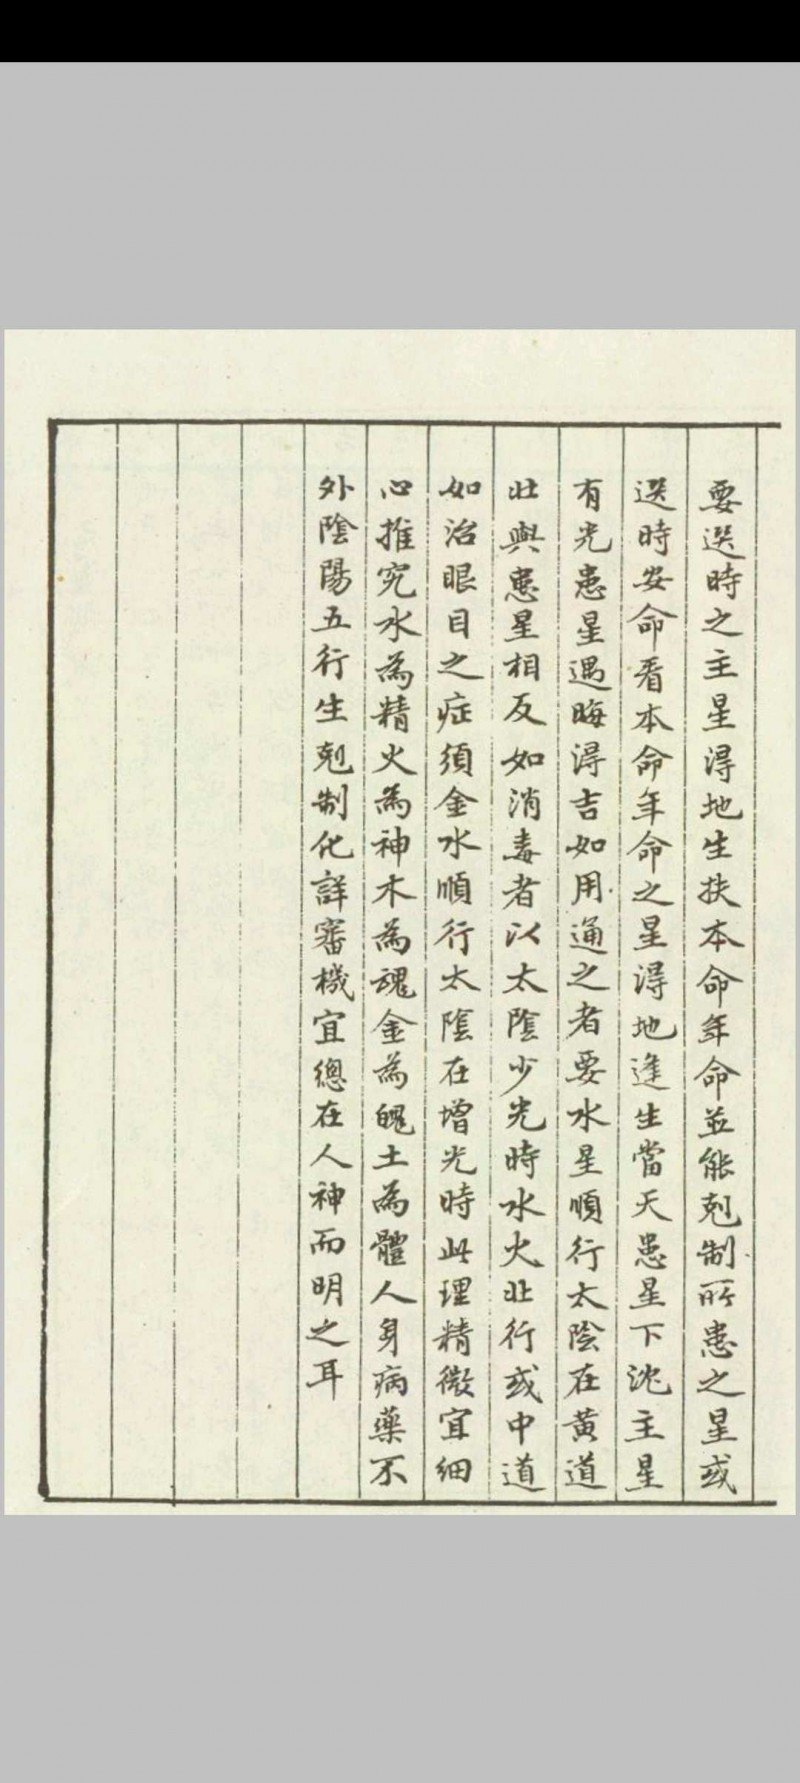 要送時之主星淂地生扶本命年命並能剋制所患之星或
送時安命看本命年命之星淂地逢生當天患星下沈主星
有光患星遇晦淂吉如用通之者要水星順行太陰在黄道
壯與患星相反如消毒者以太陰少光時水火壯行或中道
如治眼目之症須金水順行太陰在增光時此理精微宜細
心推究水為精火為神木為魂金為魄土為體人身病藥不
外陰陽五行生剋制化詳審機宜總在人神而明之耳